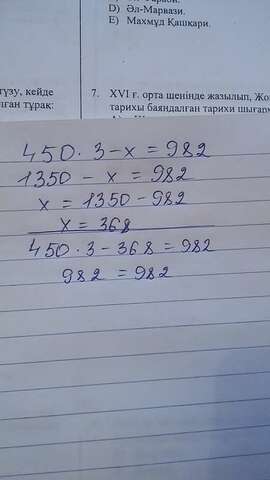 D) Әл-Марвази.
E) Махмұд Қашқари.
түзу, кейде
лған тұрақ:
7. XVI ғ. орта шенінде жазылып, Жо
тарихы баяндалған тарихи шығарм
450 · 3 - x = 982
1350 - x = 982
x = 1350 - 982
x = 368
450 · 3 - 368 = 982
982 = 982